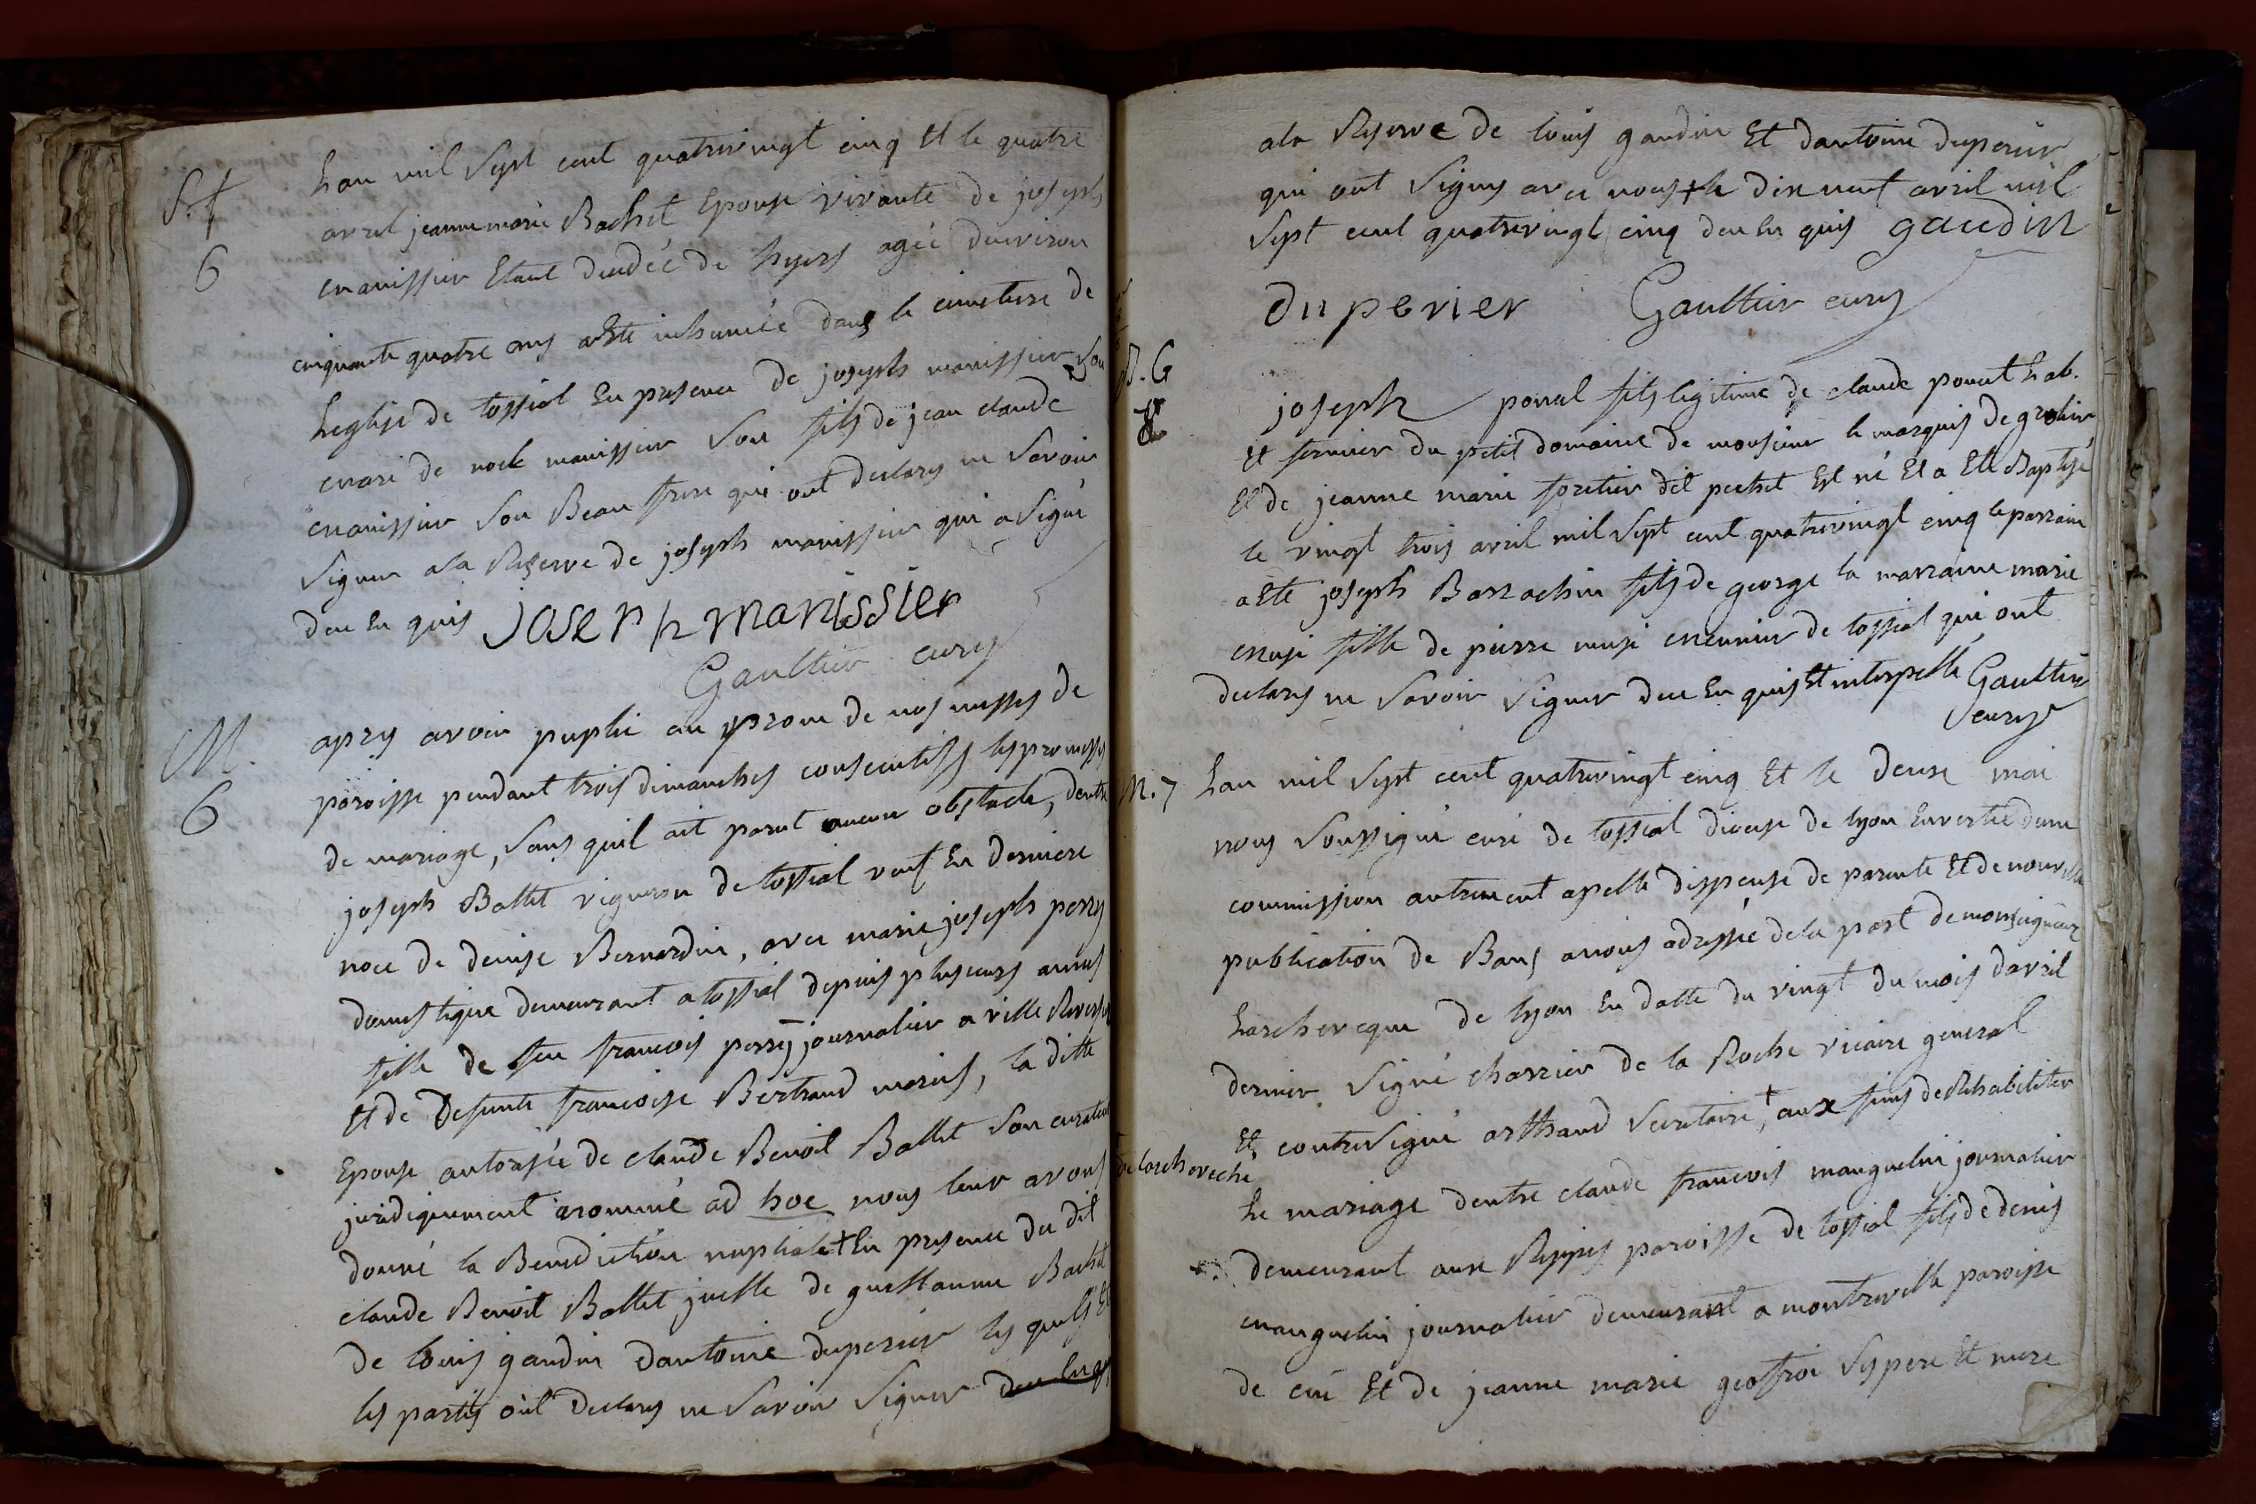 S. f
6
Lan mil sept cent quatrevingt cinq et le quatre
avril jeanne marie Bachet Epouse vivante de joseph
manissier Etant deudéé de hyers agéé denviron
cinquante quatre ans aEté inhuméé dans le cimetiere de
Leglise de tossiat En presence de joseph manissier son
mari de rock manissier son fils de jean claude
manissier son Beau frere qui ont declares ne savoir
signer ala Reserve de joseph manissier qui a signé
deu En quis joseph manissier
Gaultier curé
M.
6
apres avoir puplié au prone de nos messes de
paroisse pendant trois dimanches consecutifs les promesses
de mariage, sans quil ait parut aucun obstacle, dentre
joseph Ballet vigneron de tossiat veuf En derniere
noce de denise Bernardin, avec marie joseph perry
domestique demeurant a tossiat depuis plusieurs annés
fille de feu francois perry journalier a ville Reverse
Et de Defunte francoise Bertrand mariés, la ditte
Epouse autorisée de claude Benoit Ballet son curateur
juridiquement nommé ad hoc nous leur avons
donné la Benediction nuptiale + En presence du dit
claude Benoit Ballet juelle de guillaume Bachet
de louis gaudin dantoine duperier les quels Et
les parties ont declares ne savoir signer deu En quis
ala Reserve de louis gaudin Et dantoine duperier
qui ont signés avec nous + le dix neuf avril mil
sept cent quatrevingt cinq deu En quis gaudin
duperier Gaultier curé
B. G
8
joseph ponal fils legitime de claude ponat hab.
et fermier du petit domaine de monsieur le marquis de grolier
Et de jeanne marie foretier dit pechet Est né Et a Eté Baptisé
le vingt trois avril mil sept cent quatrevingt cinq le parrain
aEté joseph Barrachin fils de george la marraine marie
musi fille de pierre musi meunier de tossiat qui ont
declarés ne savoir signer deu En quis Et interpellé Gaultier
curé
M. 7
Lan mil sept cent quatrevingt cinq Et le deuse mai
nous soussigné curé de tossiat diocese de lyon Envertu dune
commission autrement apellé dispense de parenté Et de nouvelle
publication de Bans anous adressée de la part de monseigneur
Larcheveque de lyon En datte du vingt du mois davril
dernier signé charrier de la Roche vicaire general
Et contresigné arthaud secretaire, + aux fins de Rehabiliter
de larcheveche
Le mariage dentre claude francois manguelin journalier
demeurant aux Rippes paroisse de tossiat fils de denis
manguelin journalier demeurant a montrevelle paroisse
de cué Et de jeanne marie geoffrai ses pere Et mere